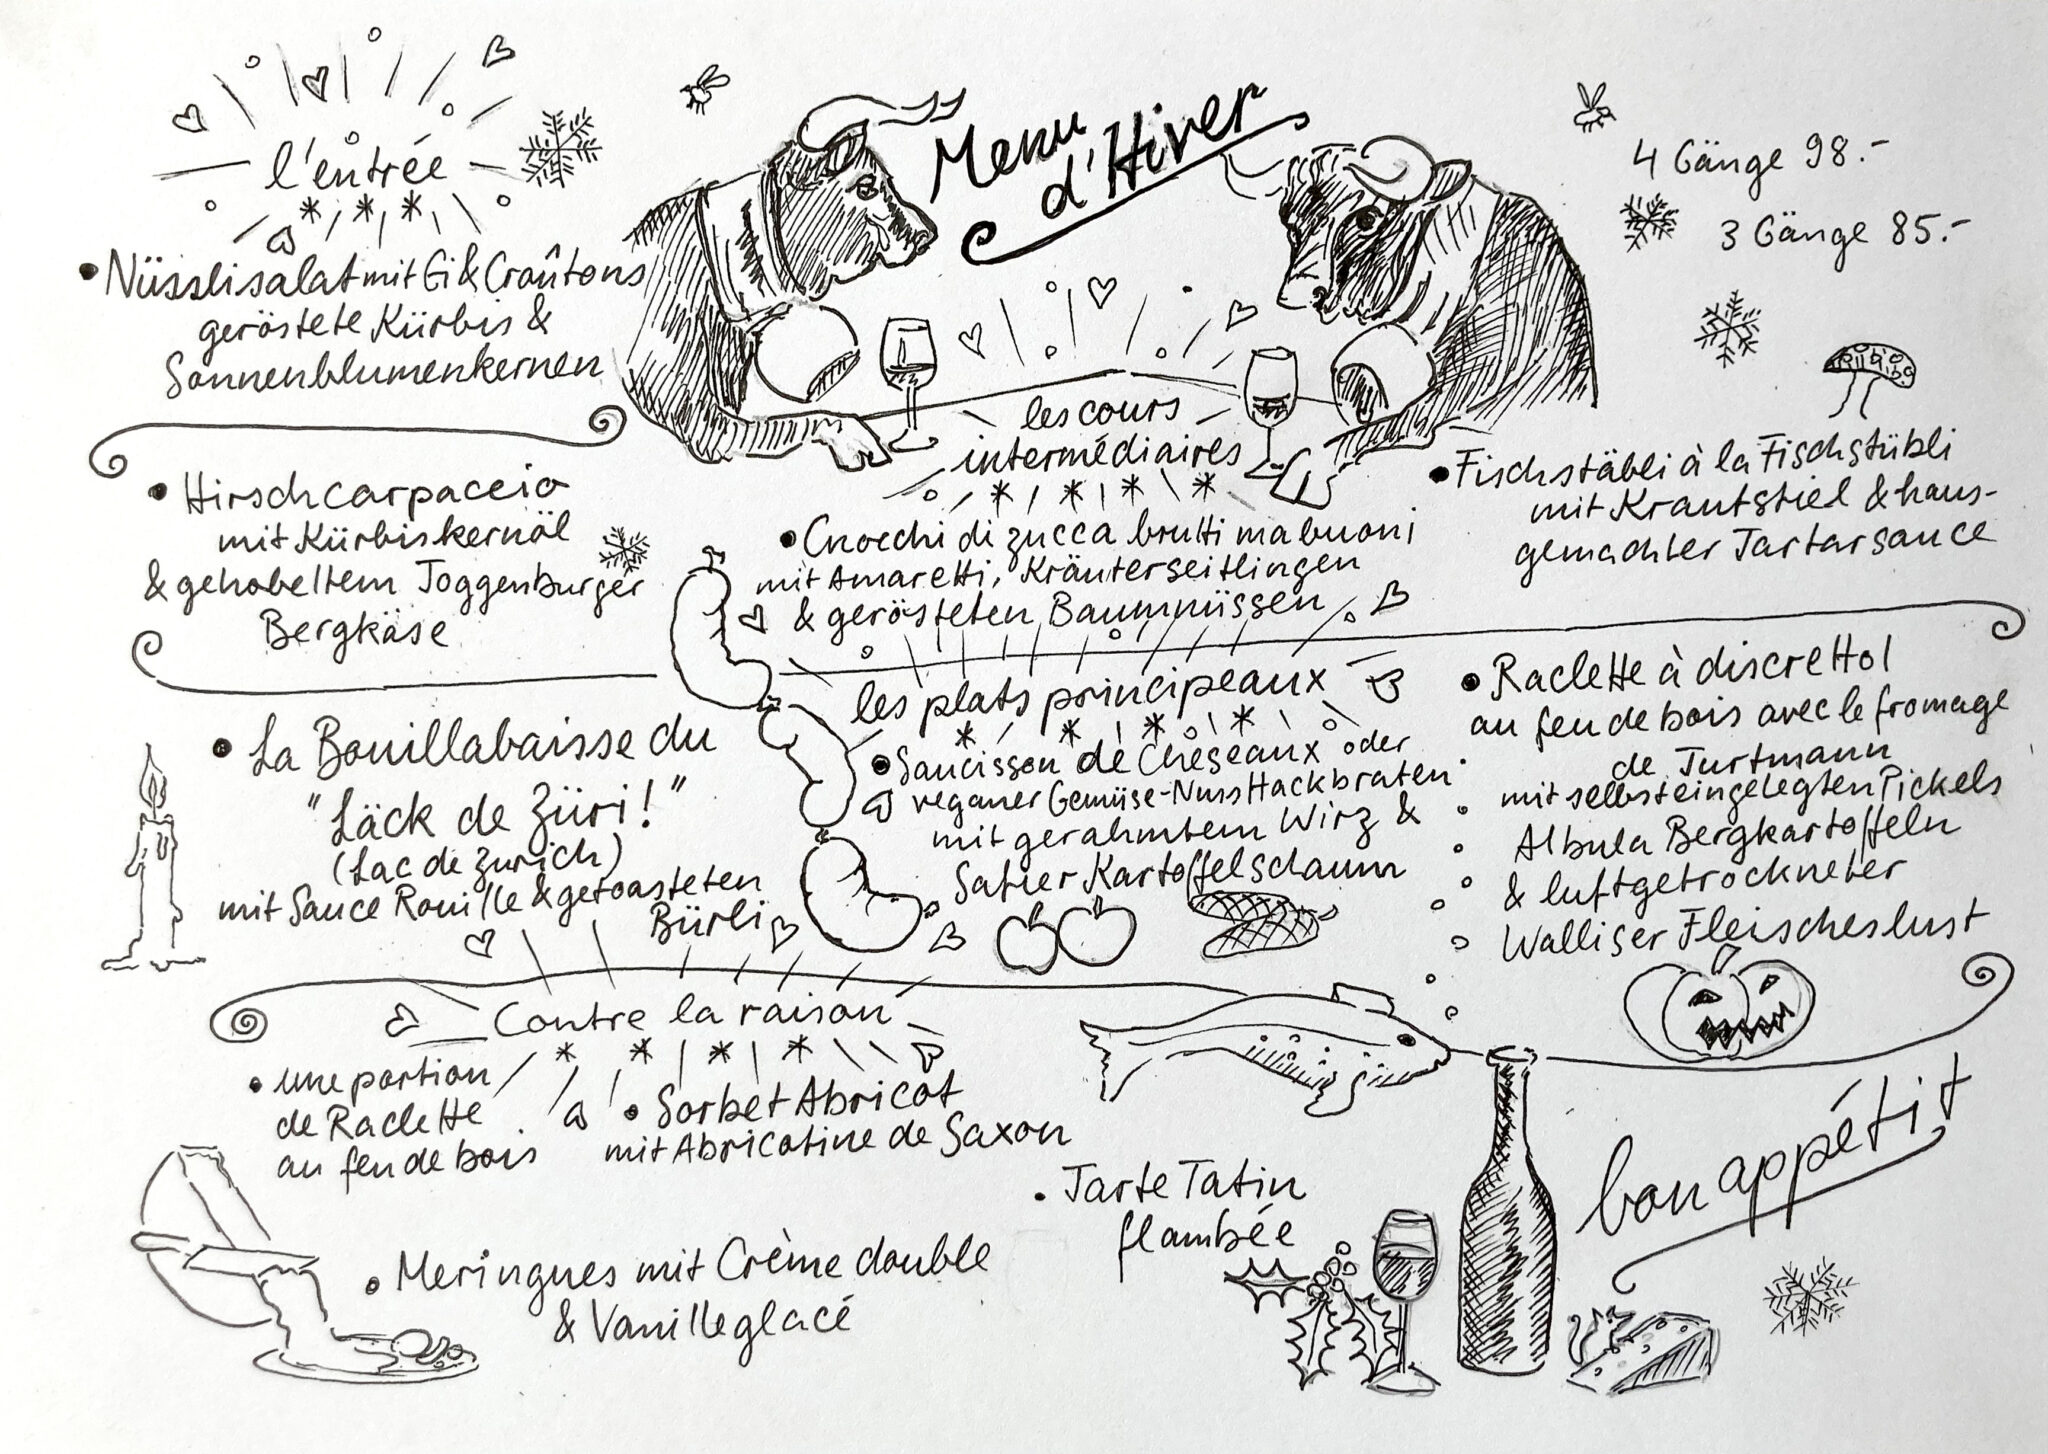 Menu
d'Hiver
4 Gänge 98.-
3 Gänge 85.-
l'entrée
* * *
• Nüsslisalat mit Ei & Croûtons
geröstete Kürbis &
Sonnenblumenkernen
les cours
intermédiaires
* * * *
• Hirschcarpaccio
mit Kürbiskernöl
& gehobeltem Toggenburger
Bergkäse
• Gnocchi di zucca brutti ma buoni
mit Amaretti, Kräuterseitlingen
& gerösteten Baumnüssen
• Fischstäbli à la Fischstübli
mit Krautstiel & haus-
gemachter Tartarsauce
les plats principeaux
* * * *
• La Bouillabaisse du
"Läck de Züri!"
(Lac de Zurich)
mit Sauce Rouille & getoasteten
Bürli
• Saucisson de Cheseaux oder
veganer Gemüse-Nuss Hackbraten
mit gerahmtem Wirz &
Kartoffelschaum
• Raclette à discrettol
au feu de bois avec le fromage
de Turtmann
mit selbsteingelegten Pickels
Albula Bergkartoffeln
& luftgetrockneter
Walliser Fleischeslust
Contre la raison
* * * *
• une portion
de Raclette
au feu de bois
• Sorbet Abricot
mit Abricotine de Saxon
• Meringues mit Crème double
& Vanilleglacé
• Tarte Tatin
flambée
bon appétit